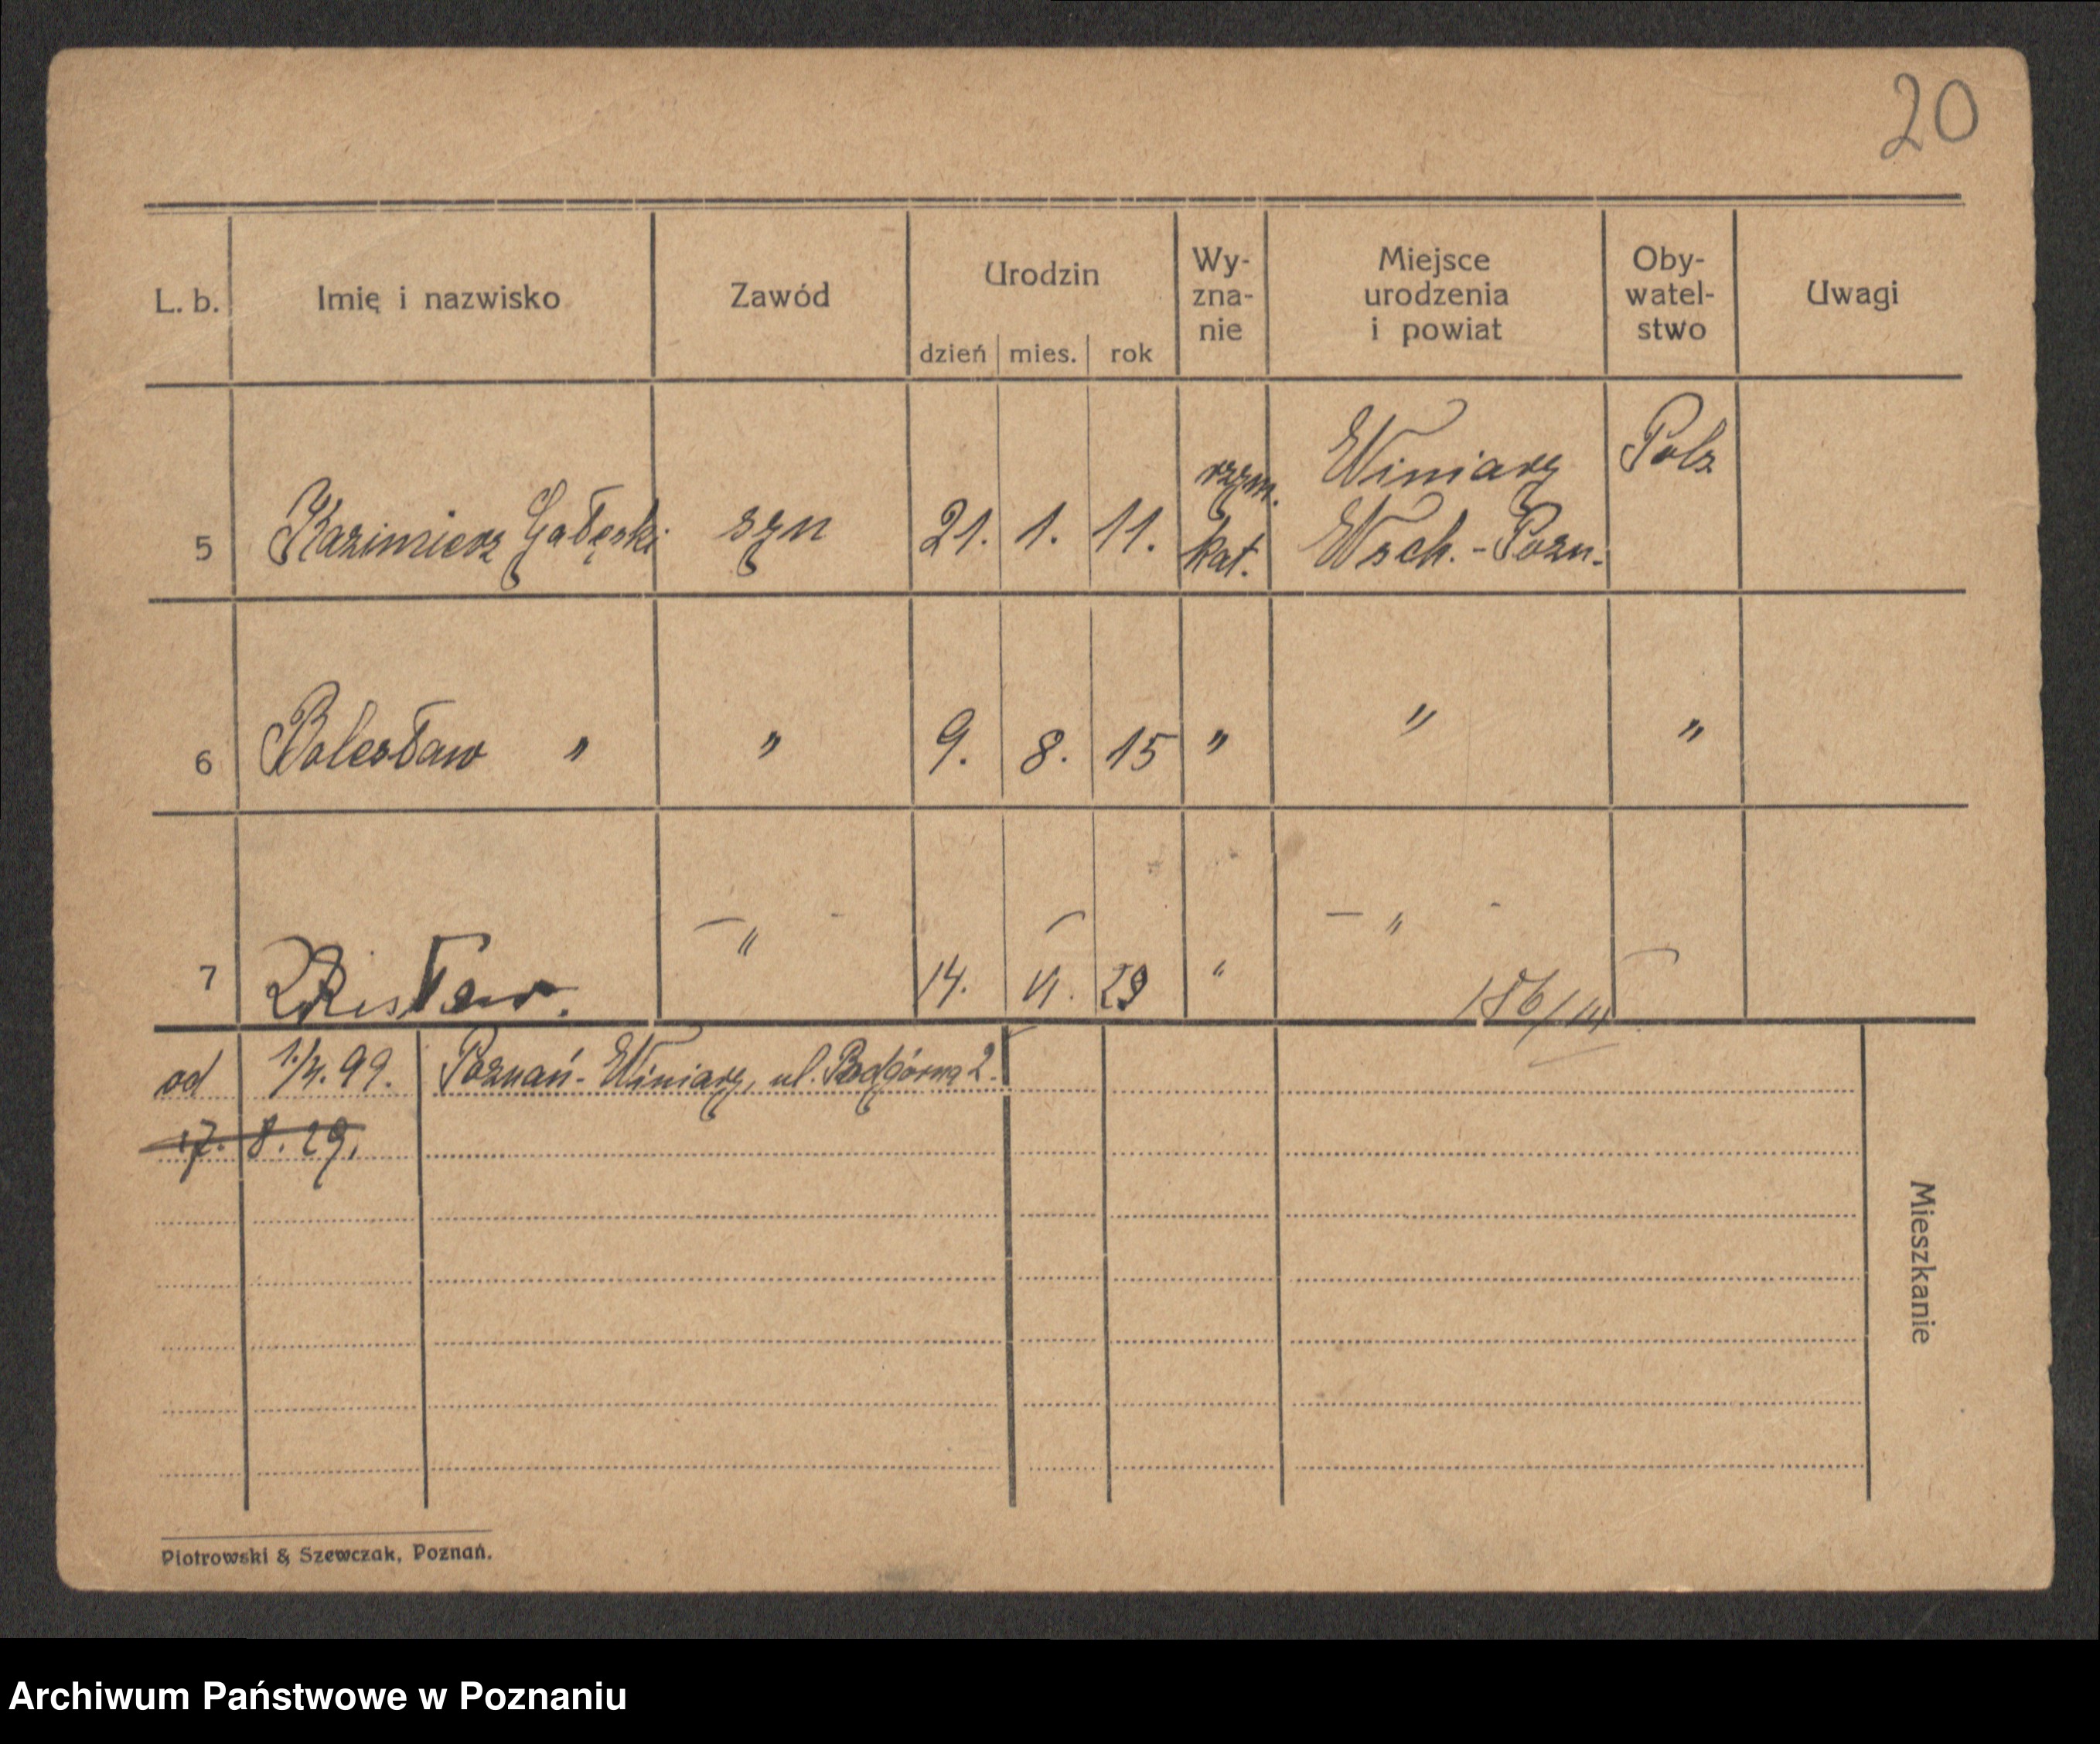 20
L. b. Imię i nazwisko Zawód Urodzin Wy- Miejsce Oby- Uwagi
zna- urodzenia watel-
nie i powiat stwo
dzień mies. rok
rzym. Winiary Polz
5 Kazimierz Gałęski syn 21. 1. 11. kat. Wsch.-Pozn.
6 Bolesław " " 9. 8. 15 " " "
7 — " - 14. VI. 29 " — " -
186/III
od 1./4. 99. Poznań-Winiary, ul. Podgórna 2.
17. 8. 29.
Mieszkanie
Piotrowski & Szewczak, Poznań.
Archiwum Państwowe w Poznaniu